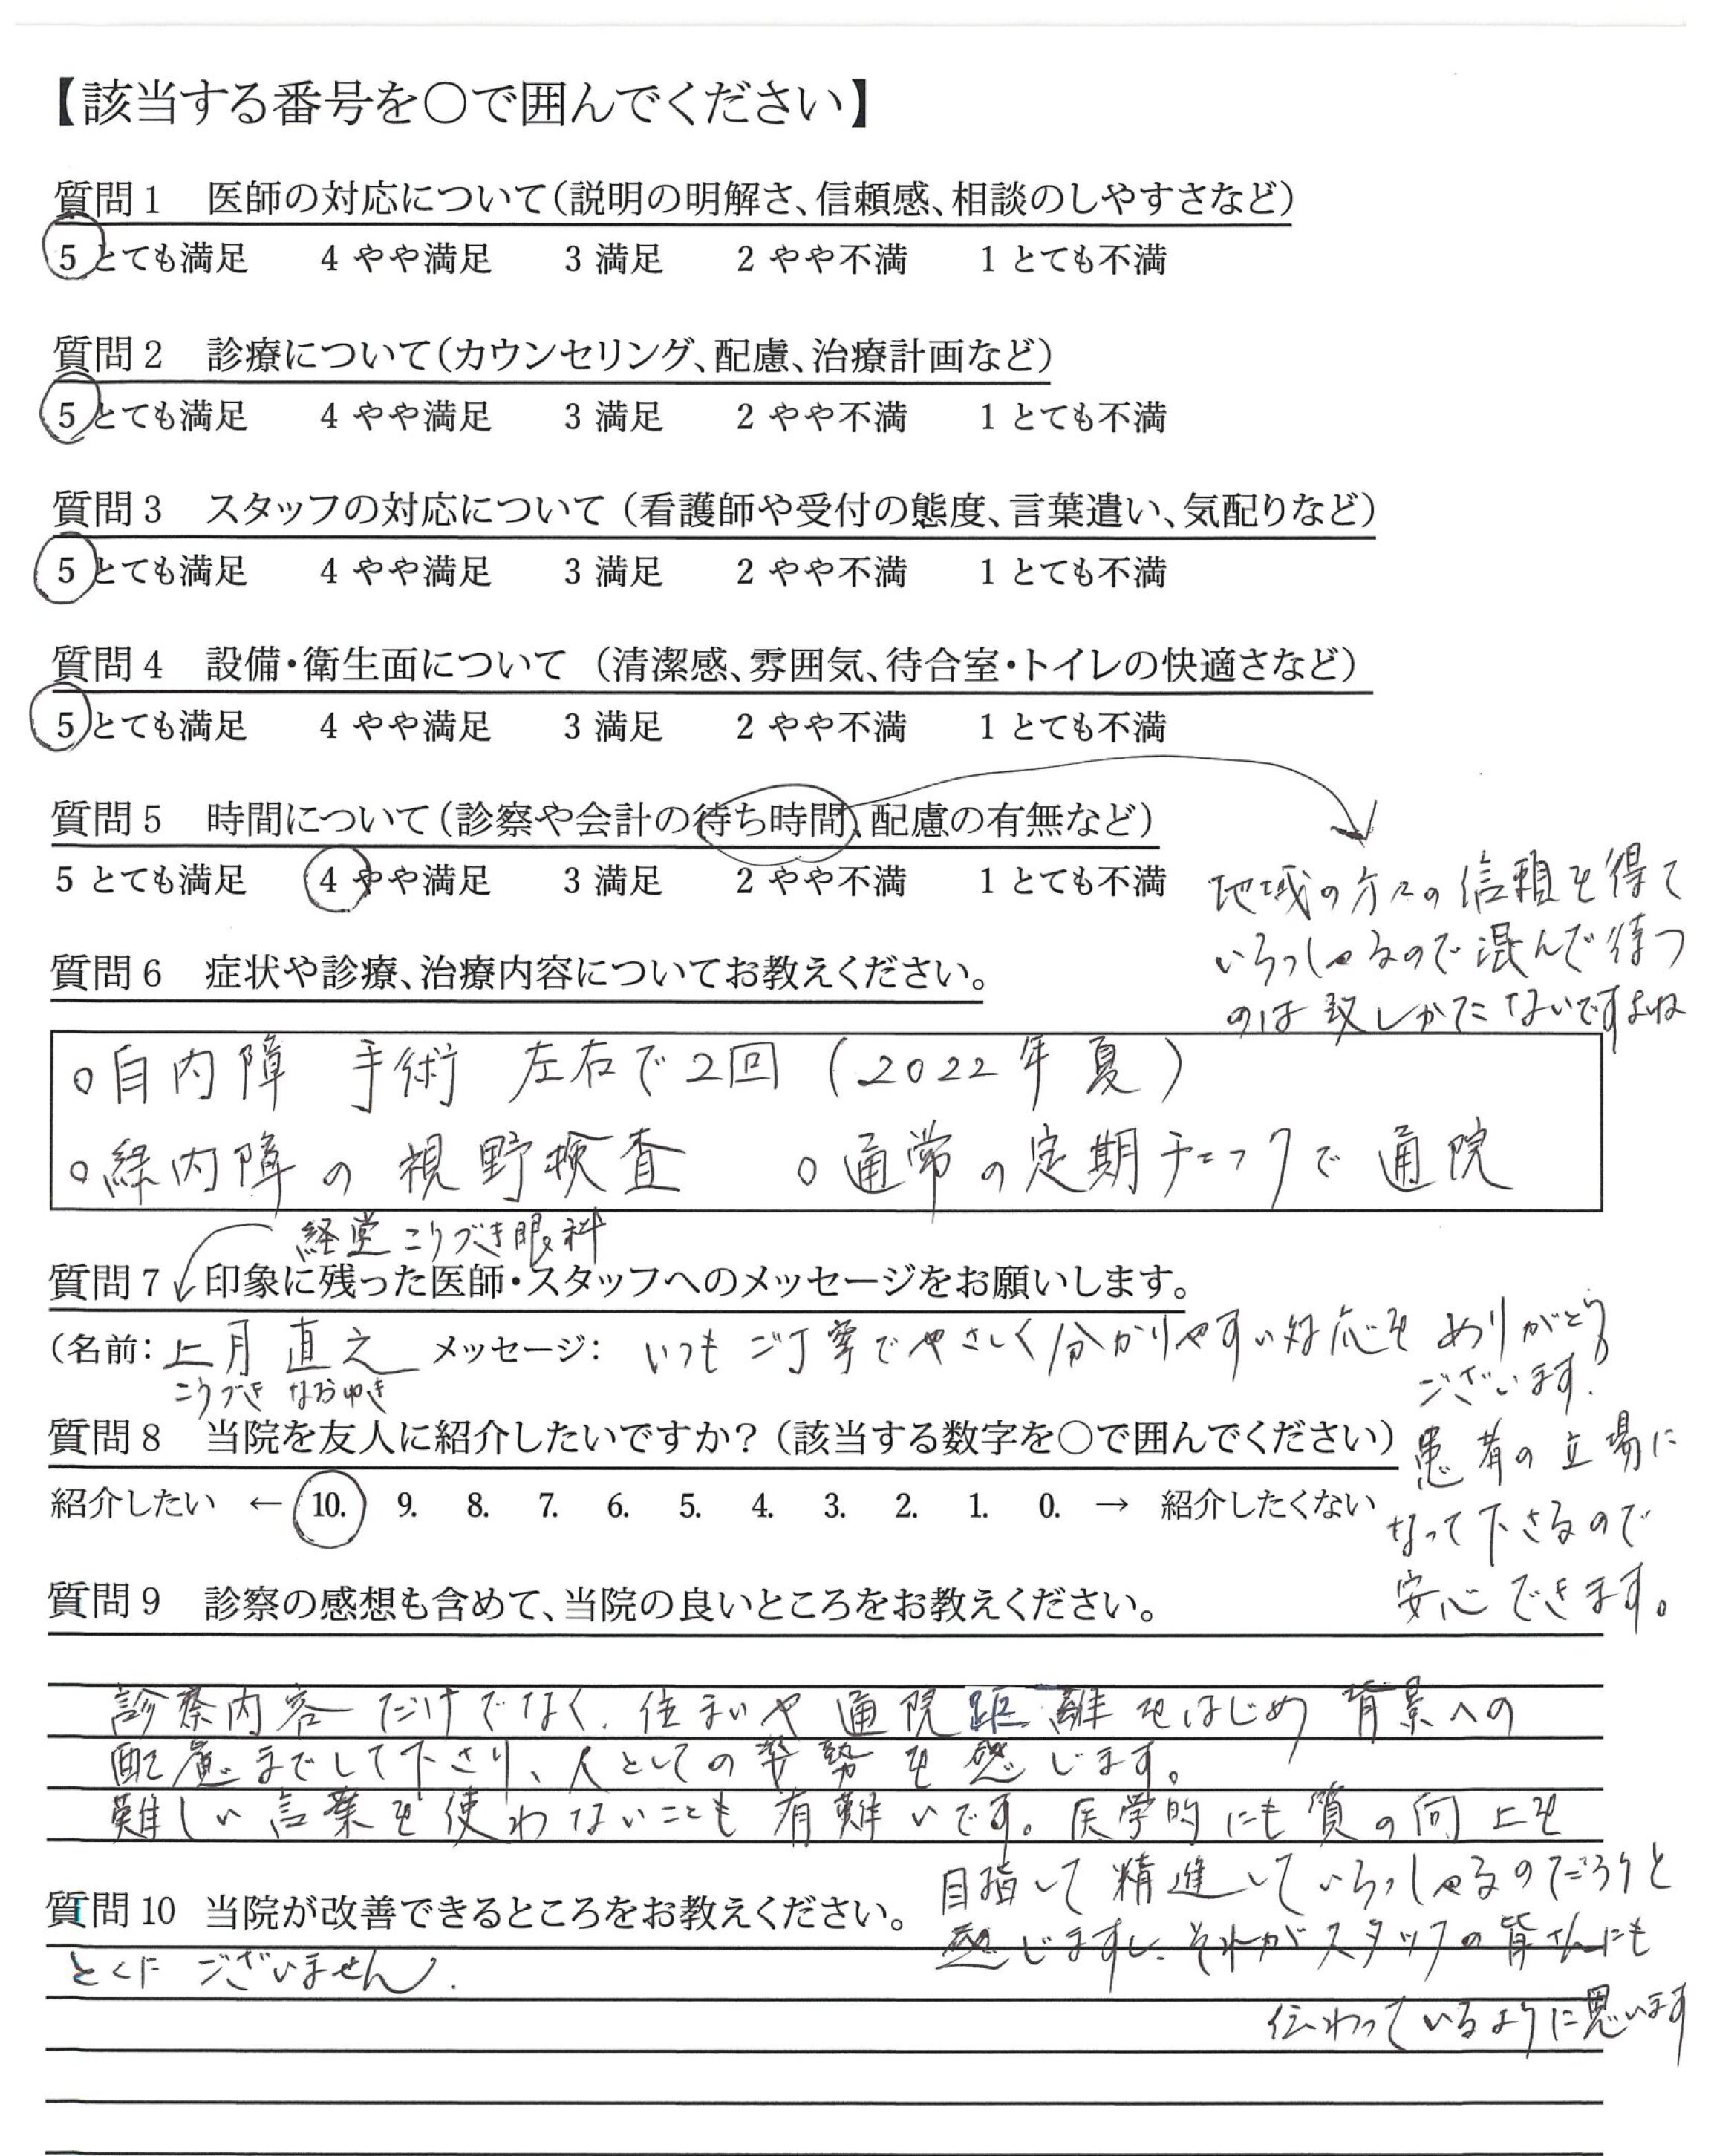 【該当する番号を○で囲んでください】
質問1 医師の対応について（説明の明解さ、信頼感、相談のしやすさなど）
5 とても満足 4 やや満足 3 満足 2 やや不満 1 とても不満
質問2 診療について（カウンセリング、配慮、治療計画など）
5 とても満足 4 やや満足 3 満足 2 やや不満 1 とても不満
質問3 スタッフの対応について（看護師や受付の態度、言葉遣い、気配りなど）
5 とても満足 4 やや満足 3 満足 2 やや不満 1 とても不満
質問4 設備・衛生面について（清潔感、雰囲気、待合室・トイレの快適さなど）
5 とても満足 4 やや満足 3 満足 2 やや不満 1 とても不満
質問5 時間について（診察や会計の待ち時間、配慮の有無など）
5 とても満足 4 やや満足 3 満足 2 やや不満 1 とても不満
地域の方々の信頼を得て
いらっしゃるので混んで待つ
のは致しかたないですよね
質問6 症状や診療、治療内容についてお教えください。
○白内障 手術 左右で2回（2022年夏）
○緑内障の視野検査 ○通常の定期チェックで通院
経堂こうづき眼科
質問7 印象に残った医師・スタッフへのメッセージをお願いします。
（名前：上月 直之 メッセージ： いつもご丁寧でやさしく分かりやすい対応をありがとう
こうづき なおゆき
ございます.
患者の立場に
なって下さるので
安心できます。
質問8 当院を友人に紹介したいですか？（該当する数字を○で囲んでください）
紹介したい ← 10. 9. 8. 7. 6. 5. 4. 3. 2. 1. 0. → 紹介したくない
質問9 診察の感想も含めて、当院の良いところをお教えください。
診察内容だけでなく、住まいや通院距離をはじめ背景への
配慮までして下さり、人としての姿勢を感じます。
難しい言葉を使わないことも有難いです。医学的にも質の向上を
目指して精進していらっしゃるのだろうと
感じますし、それがスタッフの皆さんにも
伝わっているように思います
質問10 当院が改善できるところをお教えください。
とくに ございません.